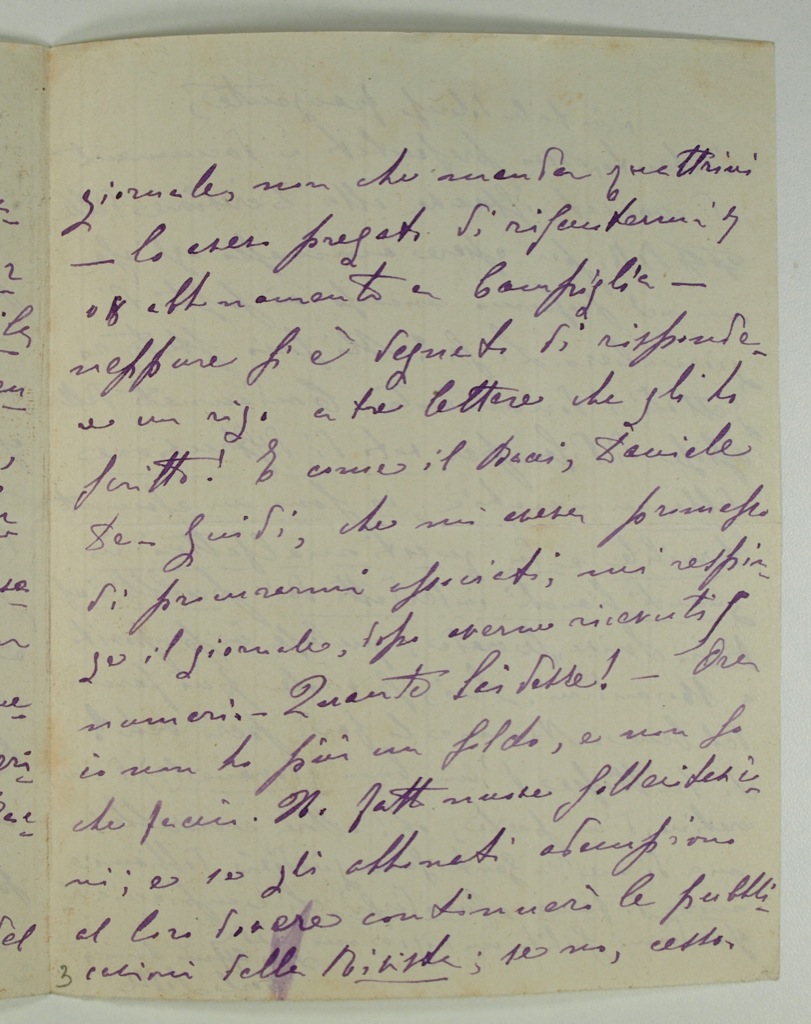 giornale, non che manda quattrini
— lo avevo pregato di rifiutarmi
abbonamento a Camfiglia —
neppure si è degnato di risponde-
re un rigo a tre lettere che gli ho
scritto! E come il Baci, Daniele
Dea Guidi, che mi aveva promesso
di procurarmi associati, mi respin-
ge il giornale, dopo averne ricevuti 5
numeri. — Quanto lei desse! — Ora
io non ho più un soldo, e non so
che farci. Ho fatto nuove sollecitazio-
ni; e se gli abbonati adempiono
al loro dovere continuerò le pubbli-
cazioni della Rivista; se no, cesso.
3